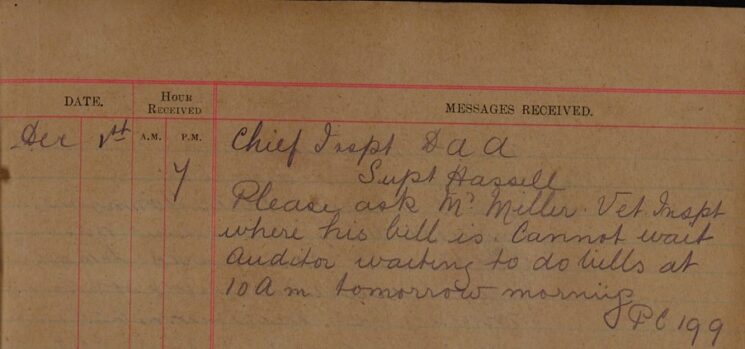 DATE. HOUR RECEIVED MESSAGES RECEIVED.
A.M. P.M.
Dec 1st 7 Chief Inspt D a a
Supt Hassell
Please ask Mr Miller Vet Inspt
where his bill is. Cannot wait
Auditor waiting to do bills at
10 A m tomorrow morning
PC 199